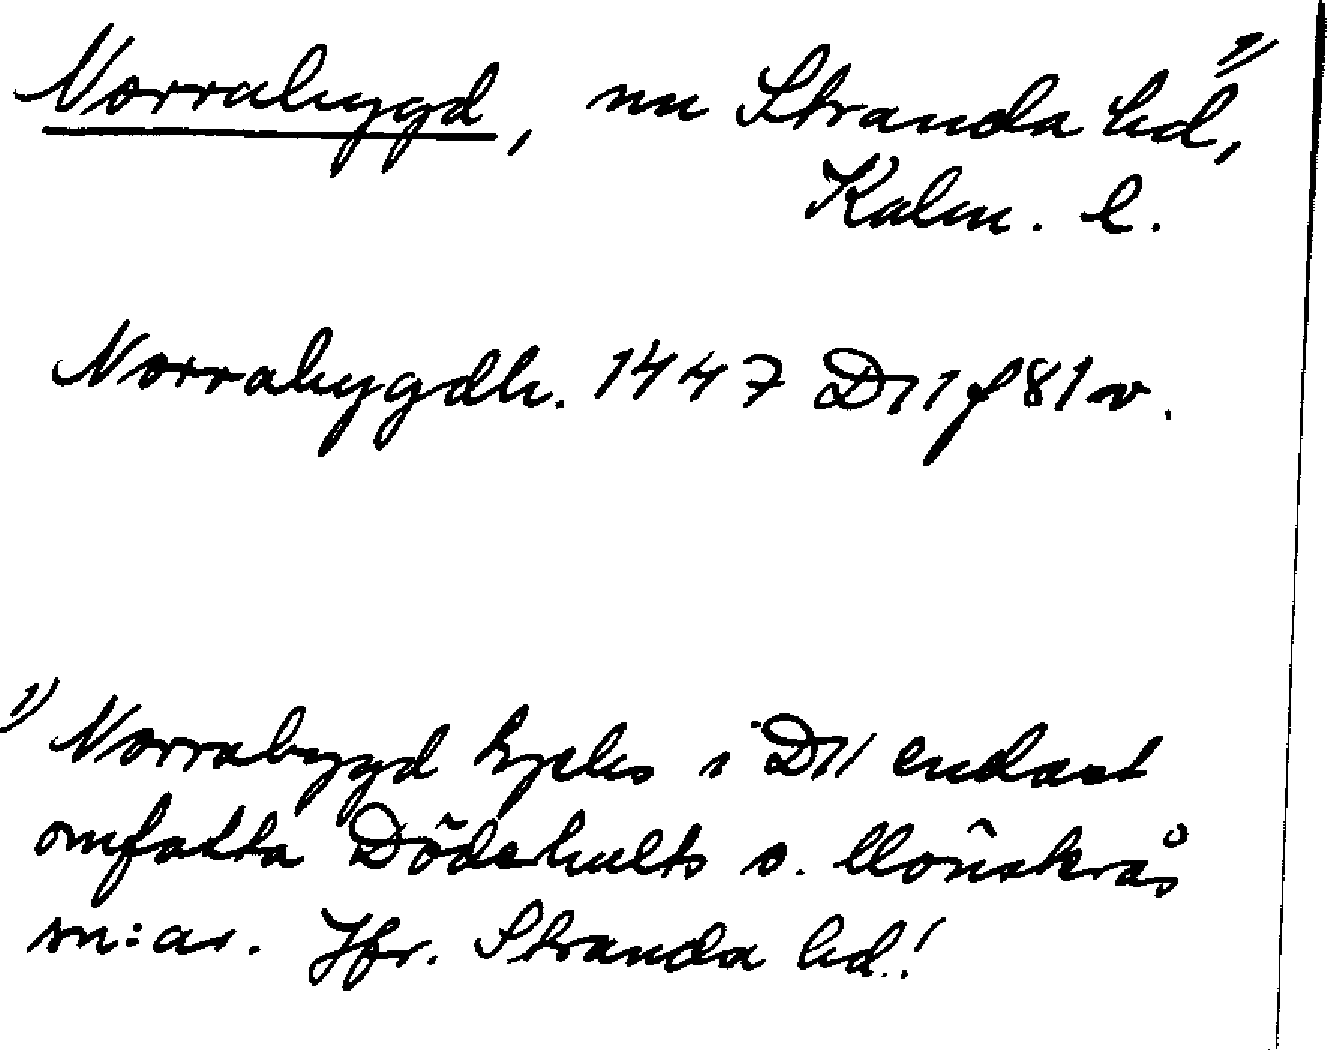 Norrabygd, nu Stranda hd,¹⁾
Kalm. l.
Norrabygdh. 1447 D11 f 81 v.
¹⁾ Norrabygd i D11 endast
omfatta Döderhults o. Mönsterås
sn:ar. Jfr. Stranda hd!